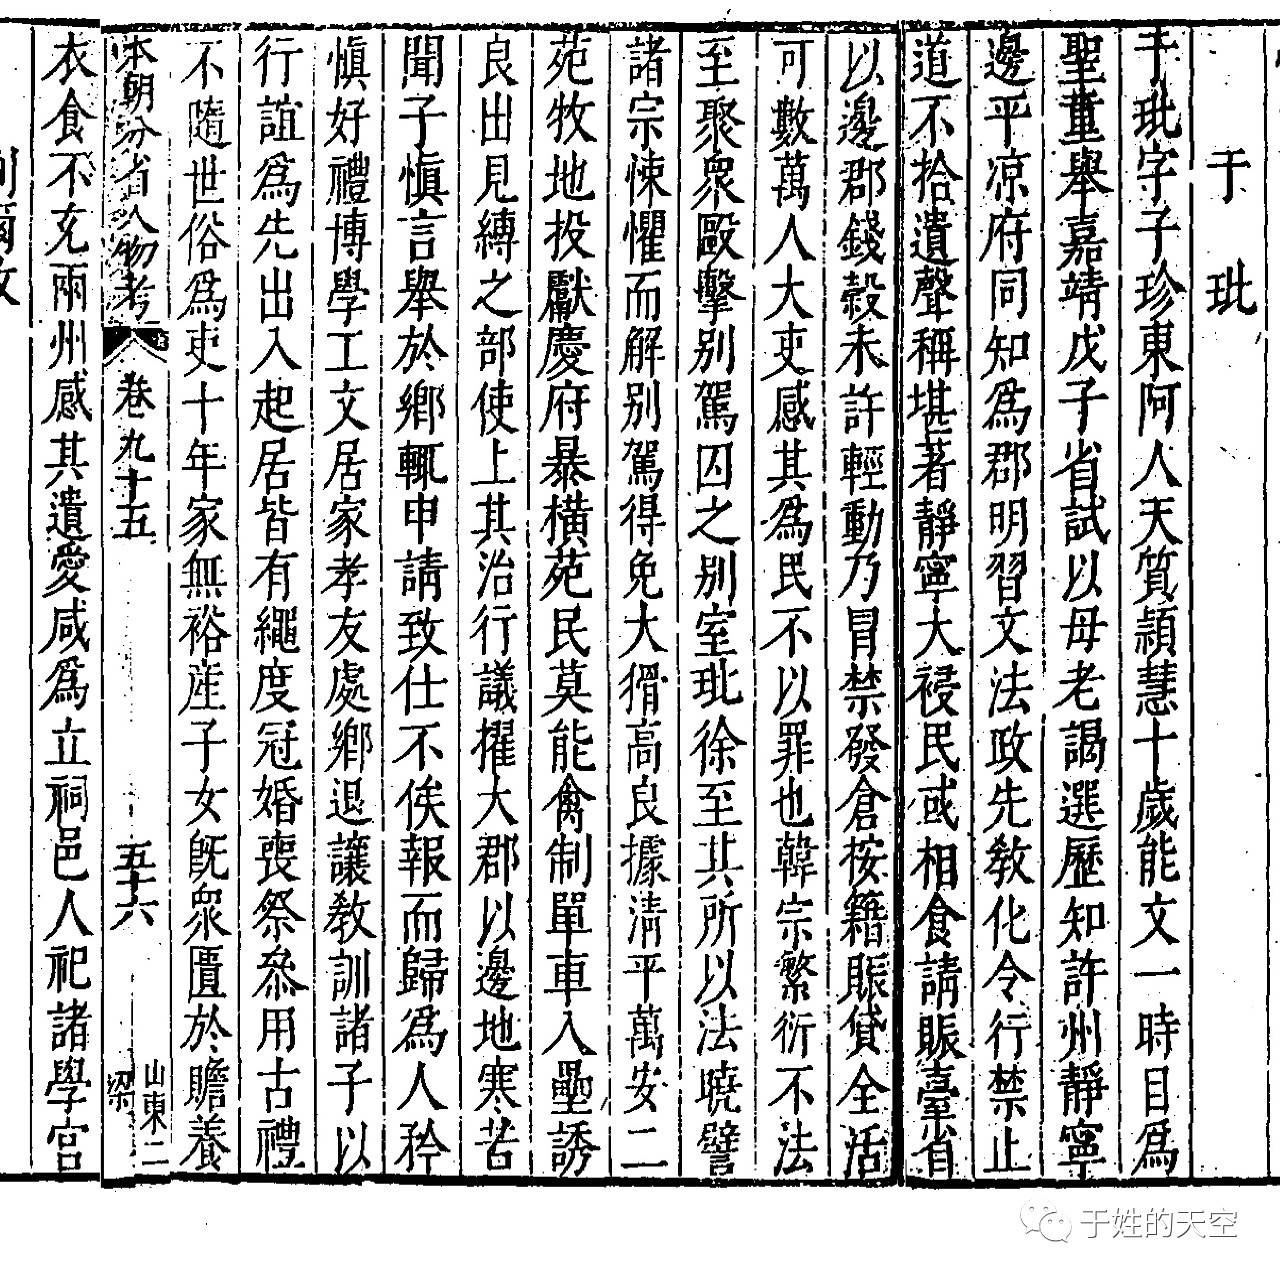 于玭
于玭字子珍東阿人天質穎慧十歲能文一時目為
聖童舉嘉靖戊子省試以母老謁選歷知許州靜寧
邊平凉府同知為郡明習文法政先教化令行禁止
道不拾遺聲稱堪著靜寧大祲民或相食請賑臺省
以邊郡錢糓未許輕動乃冒禁發倉按籍賑貸全活
可數萬人大吏感其為民不以罪也韓宗繁衍不法
至聚衆毆擊別駕囚之別室玭徐至其所以法曉譬
諸宗悚懼而解別駕得免大猾高良據清平萬安二
苑牧地投獻慶府暴橫苑民莫能禽制單車入壘誘
良出見縛之部使上其治行議擢大郡以邊地寒苦
聞子慎言舉於鄉輒申請致仕不俟報而歸為人矜
慎好禮博學工文居家孝友處鄉退讓教訓諸子以
行誼為先出入起居皆有繩度冠婚喪祭叅用古禮
不隨世俗為吏十年家無裕產子女旣衆匱於贍養
本朝分省人物考 卷九十五 五十六 山東二 梁
衣食不充兩州感其遺愛咸為立祠邑人祀諸學宮
于姓的天空